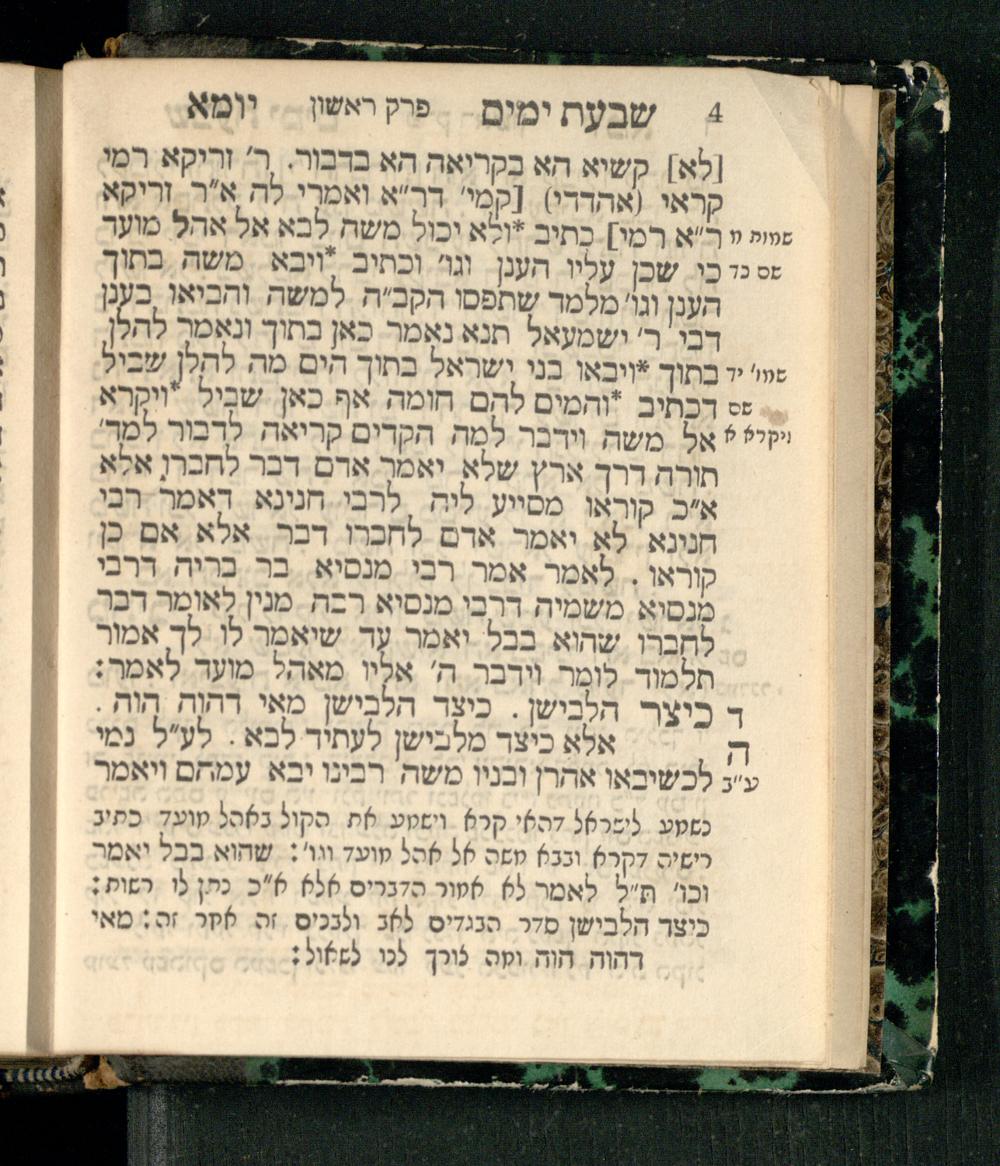 4 שבעת ימים פרק ראשון יומא
[לא] קשיא הא בקריאה הא בדבור. ר׳ זריקא רמי
קראי (אהדדי) [קמי׳ דר״א ואמרי לה א״ר זריקא
שמות מ ר״א רמי] כתיב *ולא יכול משה לבא אל אהל מועד
שם כד כי שכן עליו הענן וגו׳ וכתיב *ויבא משה בתוך
הענן וגו׳ מלמד שתפסו הקב״ה למשה והביאו בענן
דבי ר׳ ישמעאל תנא נאמר כאן בתוך ונאמר להלן
שמו׳ יד בתוך *ויבאו בני ישראל בתוך הים מה להלן שביל
שם דכתיב *והמים להם חומה אף כאן שביל *ויקרא
ויקרא א אל משה וידבר למה הקדים קריאה לדבור למד׳
תורה דרך ארץ שלא יאמר אדם דבר לחברו אלא
א״כ קוראו מסייע ליה לרבי חנינא דאמר רבי
חנינא לא יאמר אדם לחברו דבר אלא אם כן
קוראו. לאמר אמר רבי מנסיא בר בריה דרבי
מנסיא משמיה דרבי מנסיא רבה מנין לאומר דבר
לחברו שהוא בבל יאמר עד שיאמר לו לך אמור
תלמוד לומר וידבר ה׳ אליו מאהל מועד לאמר:
ד כיצר הלבישן. כיצד הלבישן מאי דהוה הוה.
ה אלא כיצד מלבישן לעתיד לבא. לע״ל נמי
ע״ב לכשיבאו אהרן ובניו משה רבינו יבא עמהם ויאמר
כשמע לישראל דהאי קרא וישמע את הקול באהל מועד כתיב
רישיה דקרא ובבא משה אל אהל מועד וגו׳: שהוא בבל יאמר
וכו׳ ת״ל לאמר לא אמור הדברים אלא א״כ נתן לו רשות:
כיצד הלבישן סדר הבגדים לאב ולבנים זה אחר זה: מאי
דהוה הוה ומה צורך לנו לשאול: